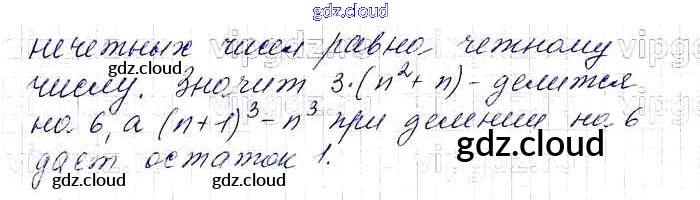 gdz.cloud
нечетных чисел равно четному
числу. Значит 3·(n²+n) - делится
на 6, а (n+1)³-n³ при делении на 6
дает остаток 1.
gdz.cloud
gdz.cloud
gdz.cloud
gdz.cloud
gdz.cloud
gdz.cloud